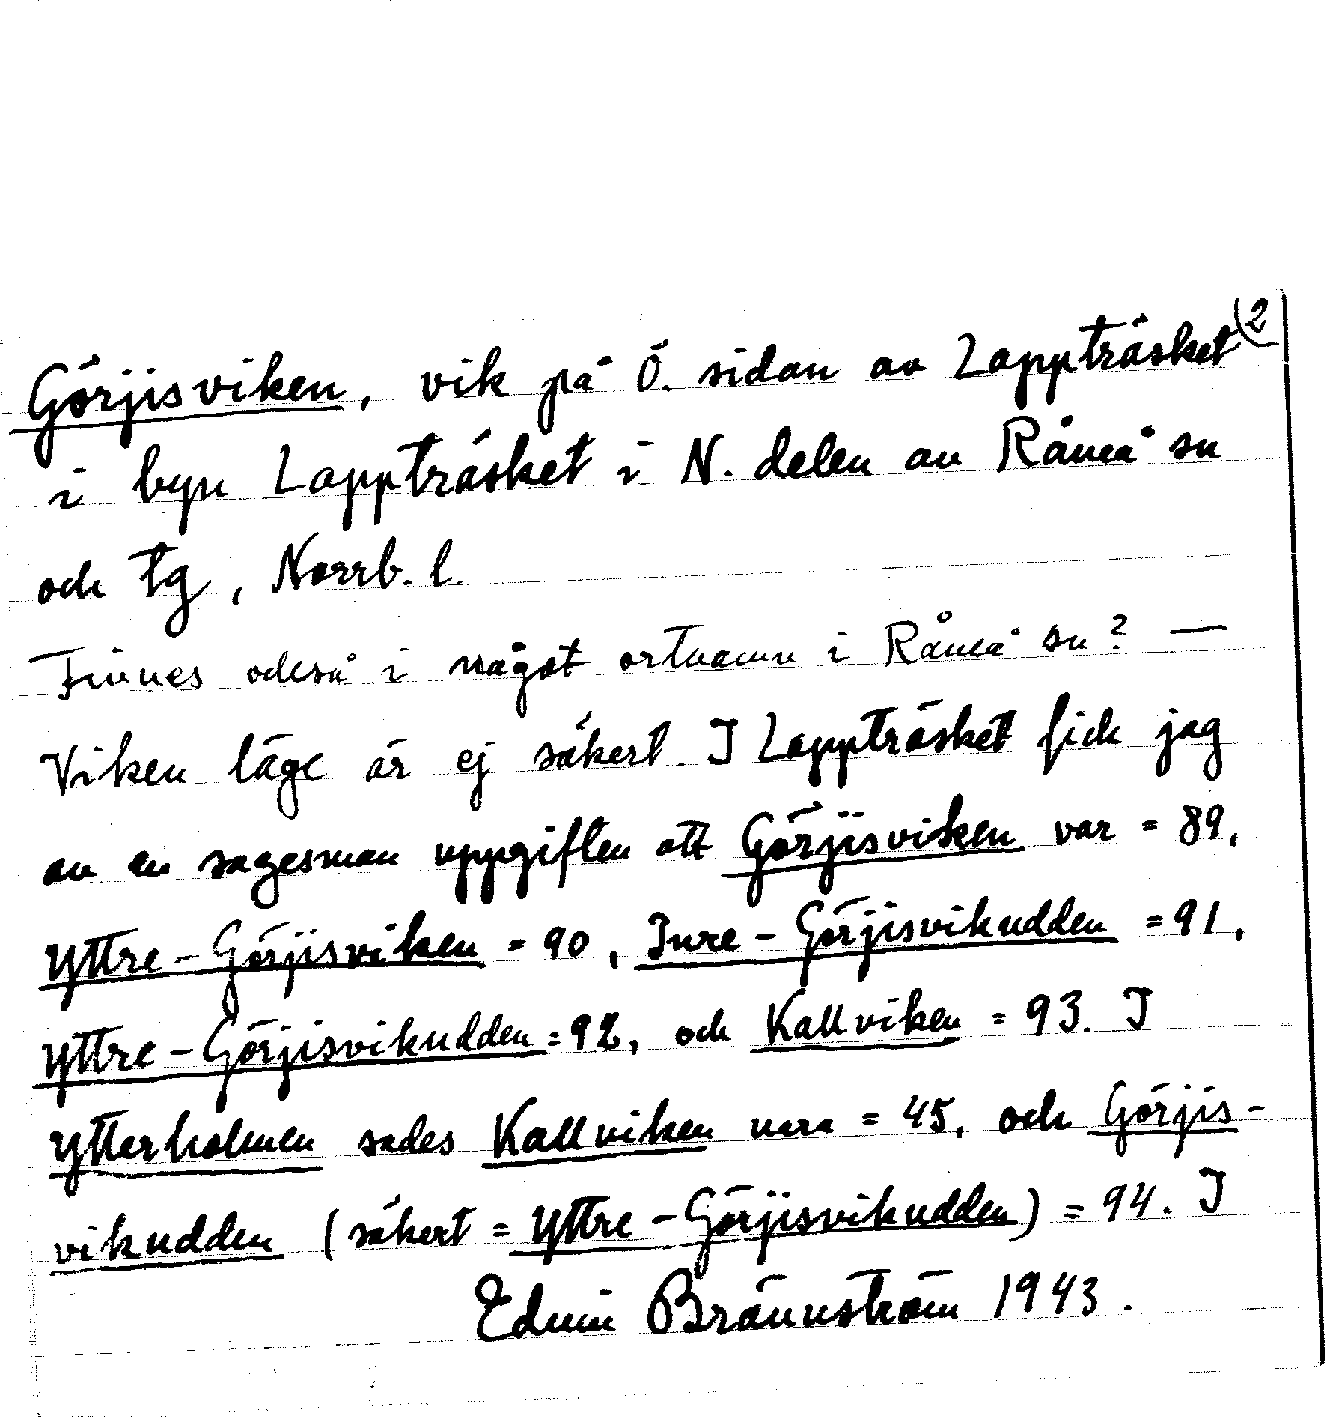 Görjisviken, vik på Ö. sidan av Lappträsket (2
i byn Lappträsket i N. delen av Råneå sn
och tg, Norrb. l.
Finnes också i något ortnamn i Råneå sn? —
Viken läge är ej säkert. I Lappträsket fick jag
av en sagesman uppgiften att Görjisviken var = 89,
Yttre-Görjisviken = 90, Inre-Görjisvikudden = 91,
Yttre-Görjisvikudden = 92, och Kallviken = 93. I
Ytterholmen sades Kallviken vara = 45, och Görjis-
vikudden (säkert = Yttre-Görjisvikudden) = 94. I
Edvin Brännström 1943.